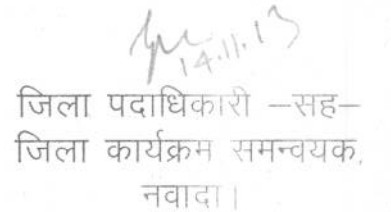 14.11.13
जिला पदाधिकारी –सह–
जिला कार्यक्रम समन्वयक,
नवादा।